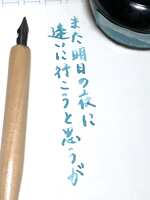 また明日の夜に
逢いに行こうと思うが